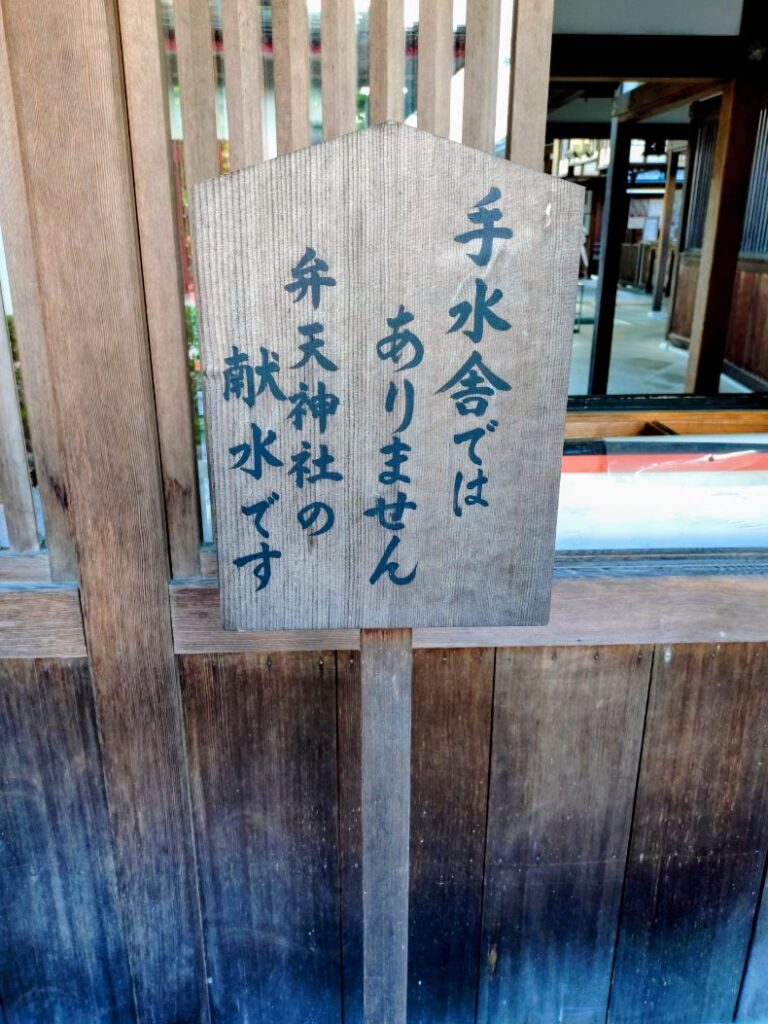 手水舎では
ありません
弁天神社の
献水です